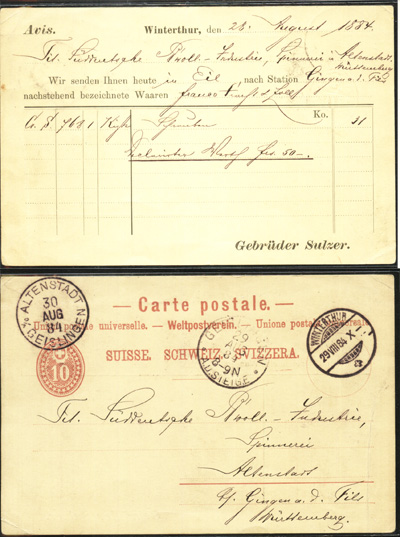 Avis.
Winterthur, den 28. August 1884.
Tit. Süddeutsche Trikot-Industrie, Spinnerei in Altenstadt,
Württemberg
Wir senden Ihnen heute in Eil, nach Station Gingen a. d. Fils
nachstehend bezeichnete Waaren franco
Ko.
G. S. 7681 Kiste 31
Declarirter Werth frs. 50.—
Gebrüder Sulzer.
ALTENSTADT
30
AUG
84
GEISLINGEN
— Carte postale. —
Union postale universelle. — Weltpostverein. — Unione postale universale.
SUISSE. SCHWEIZ. SVIZZERA.
10
8-9N
WINTERTHUR
29 VIII 84 X
Tit. Süddeutsche Trikot-Industrie,
Spinnerei
Altenstadt
b/. Gingen a. d. Fils
Württemberg.